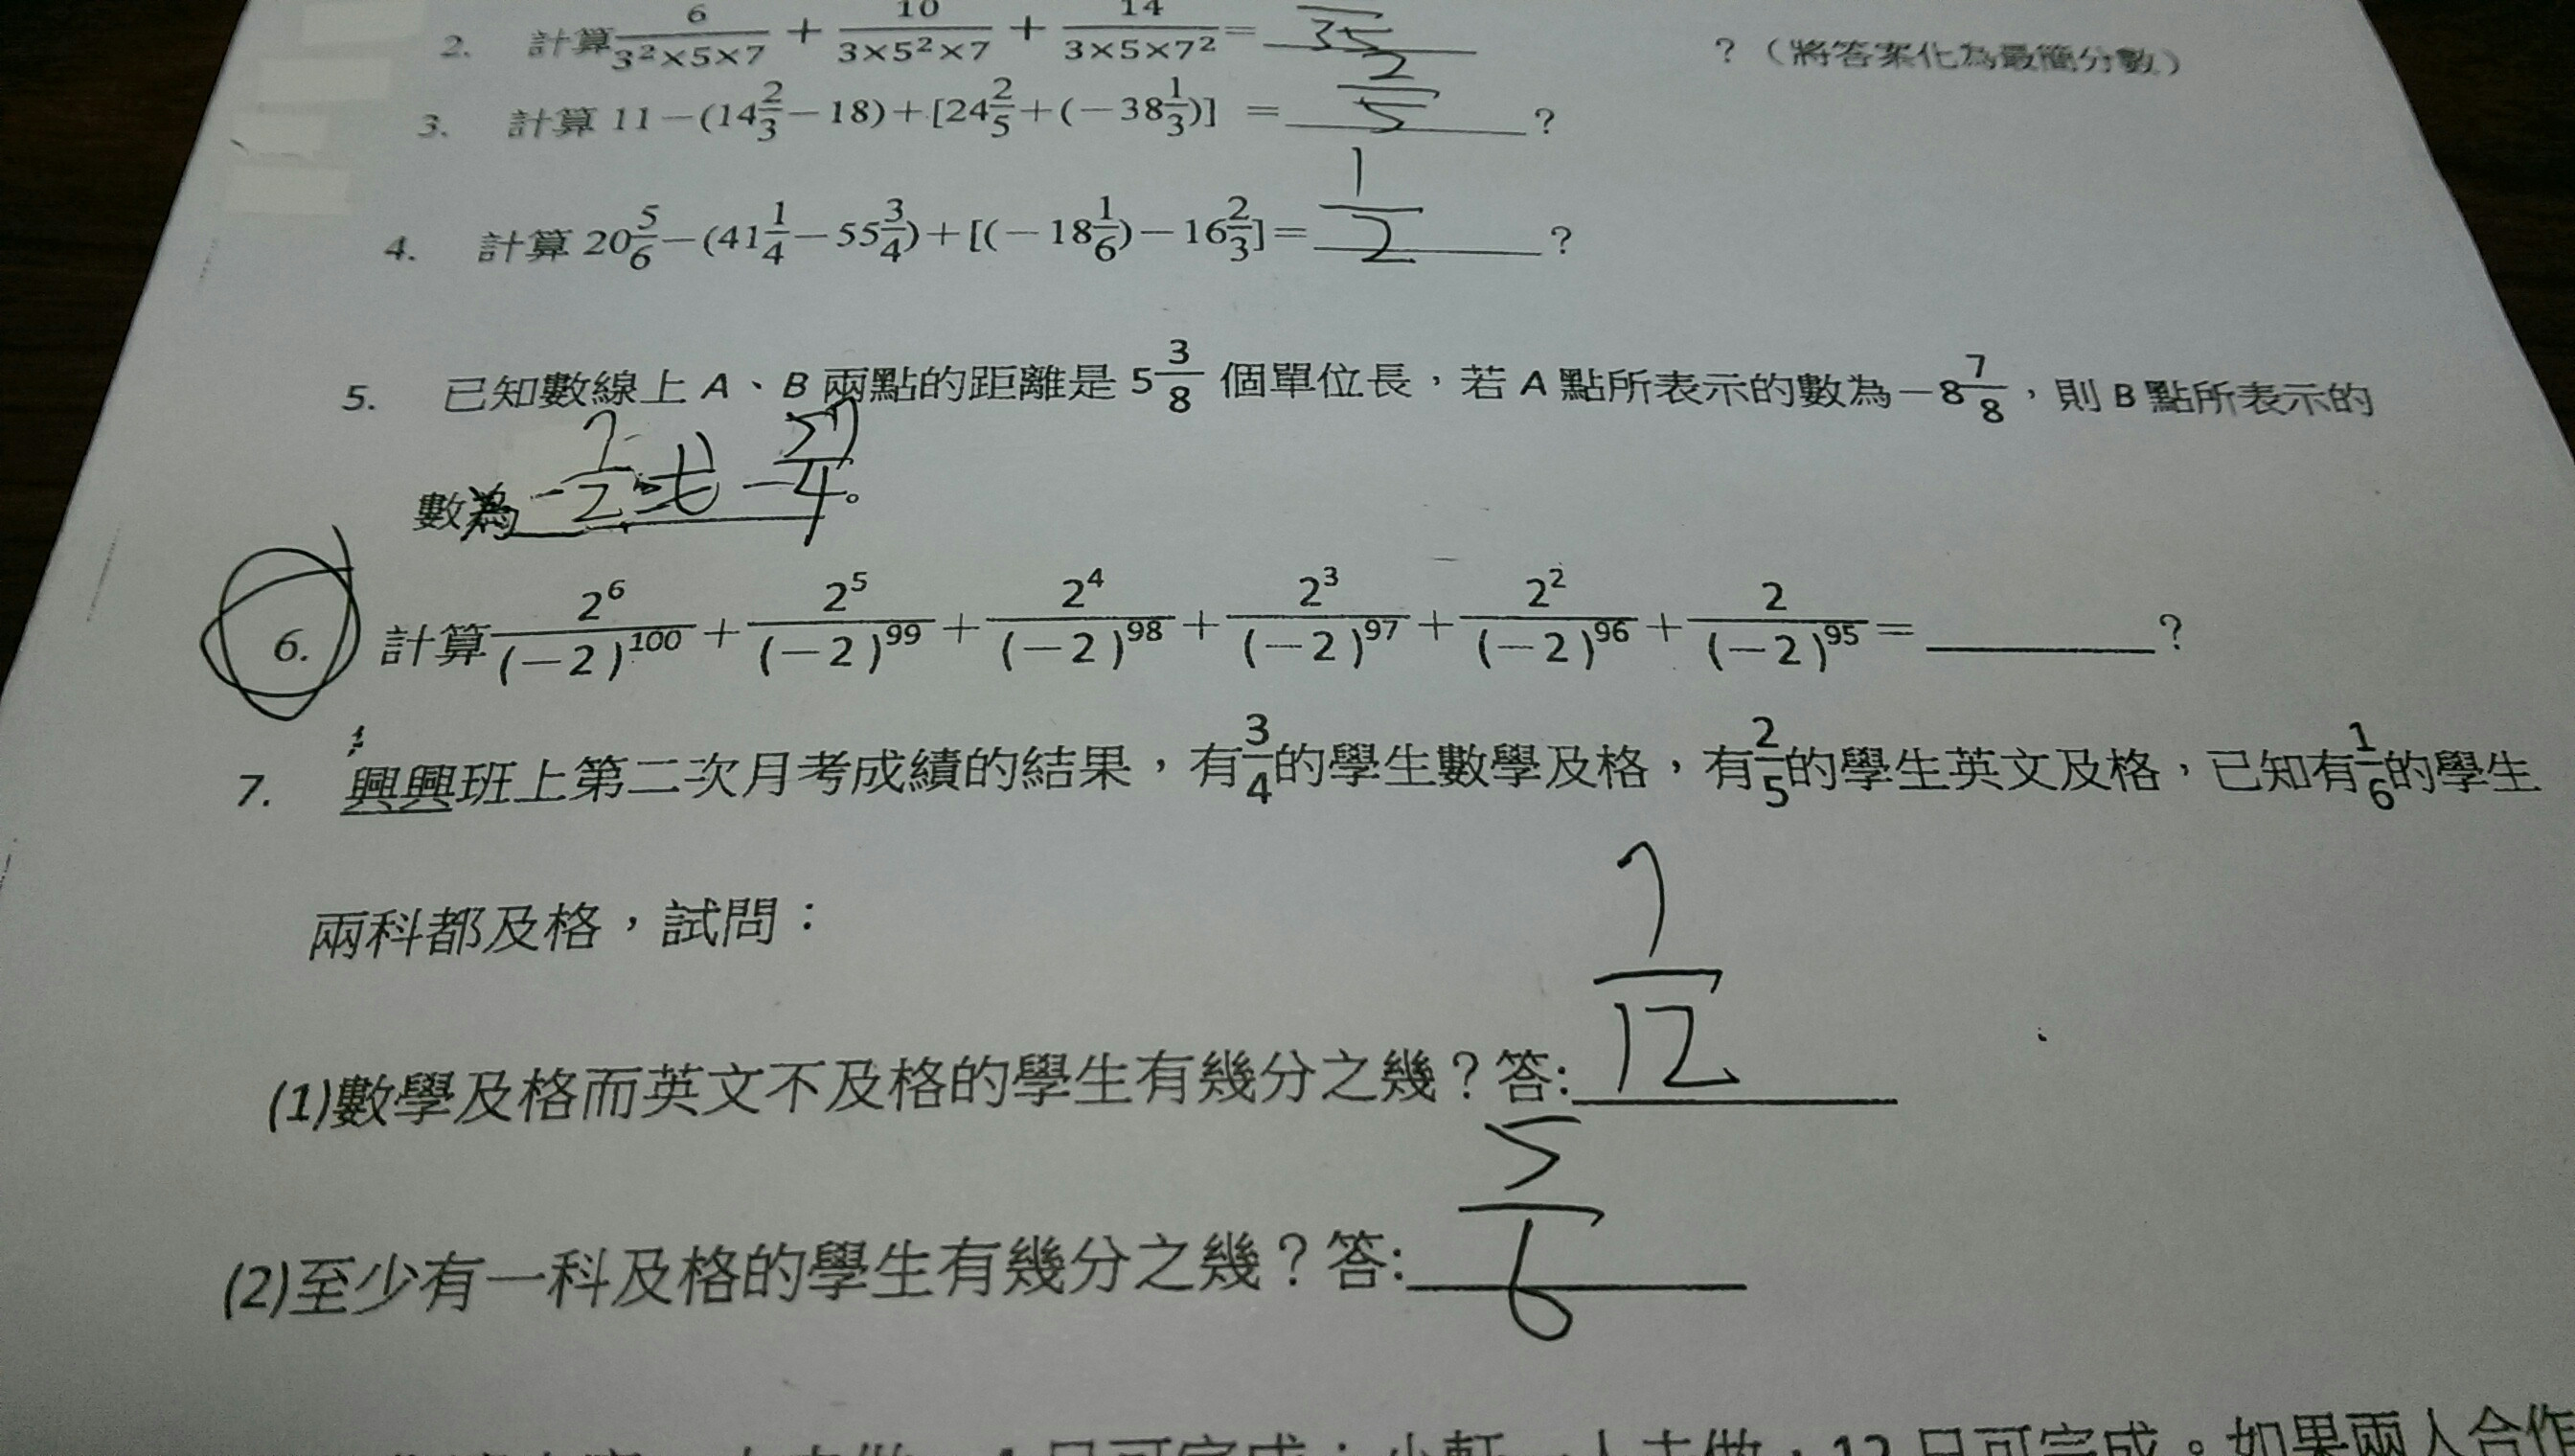 2. 計算 6/(3²×5×7) + 10/(3×5²×7) + 14/(3×5×7²) = 35 ?（將答案化為最簡分數）
3. 計算 11－(14 2/3－18)＋[24 2/5＋(－38 1/3)] = 2/5 ?
4. 計算 20 5/6－(41 1/4－55 3/4)＋[(－18 1/6)－16 2/3]= 1/2 ?
5. 已知數線上 A、B 兩點的距離是 5 3/8 個單位長，若 A 點所表示的數為－8 7/8，則 B 點所表示的
數為 －7/2 或 －57/4。
6. 計算 2⁶/(－2)¹⁰⁰ + 2⁵/(－2)⁹⁹ + 2⁴/(－2)⁹⁸ + 2³/(－2)⁹⁷ + 2²/(－2)⁹⁶ + 2/(－2)⁹⁵ = ?
7. 興興班上第二次月考成績的結果，有3/4的學生數學及格，有2/5的學生英文及格，已知有1/6的學生
兩科都及格，試問：
(1)數學及格而英文不及格的學生有幾分之幾？答: 7/12
(2)至少有一科及格的學生有幾分之幾？答: 5/6
12 日可完成。如果兩人合作